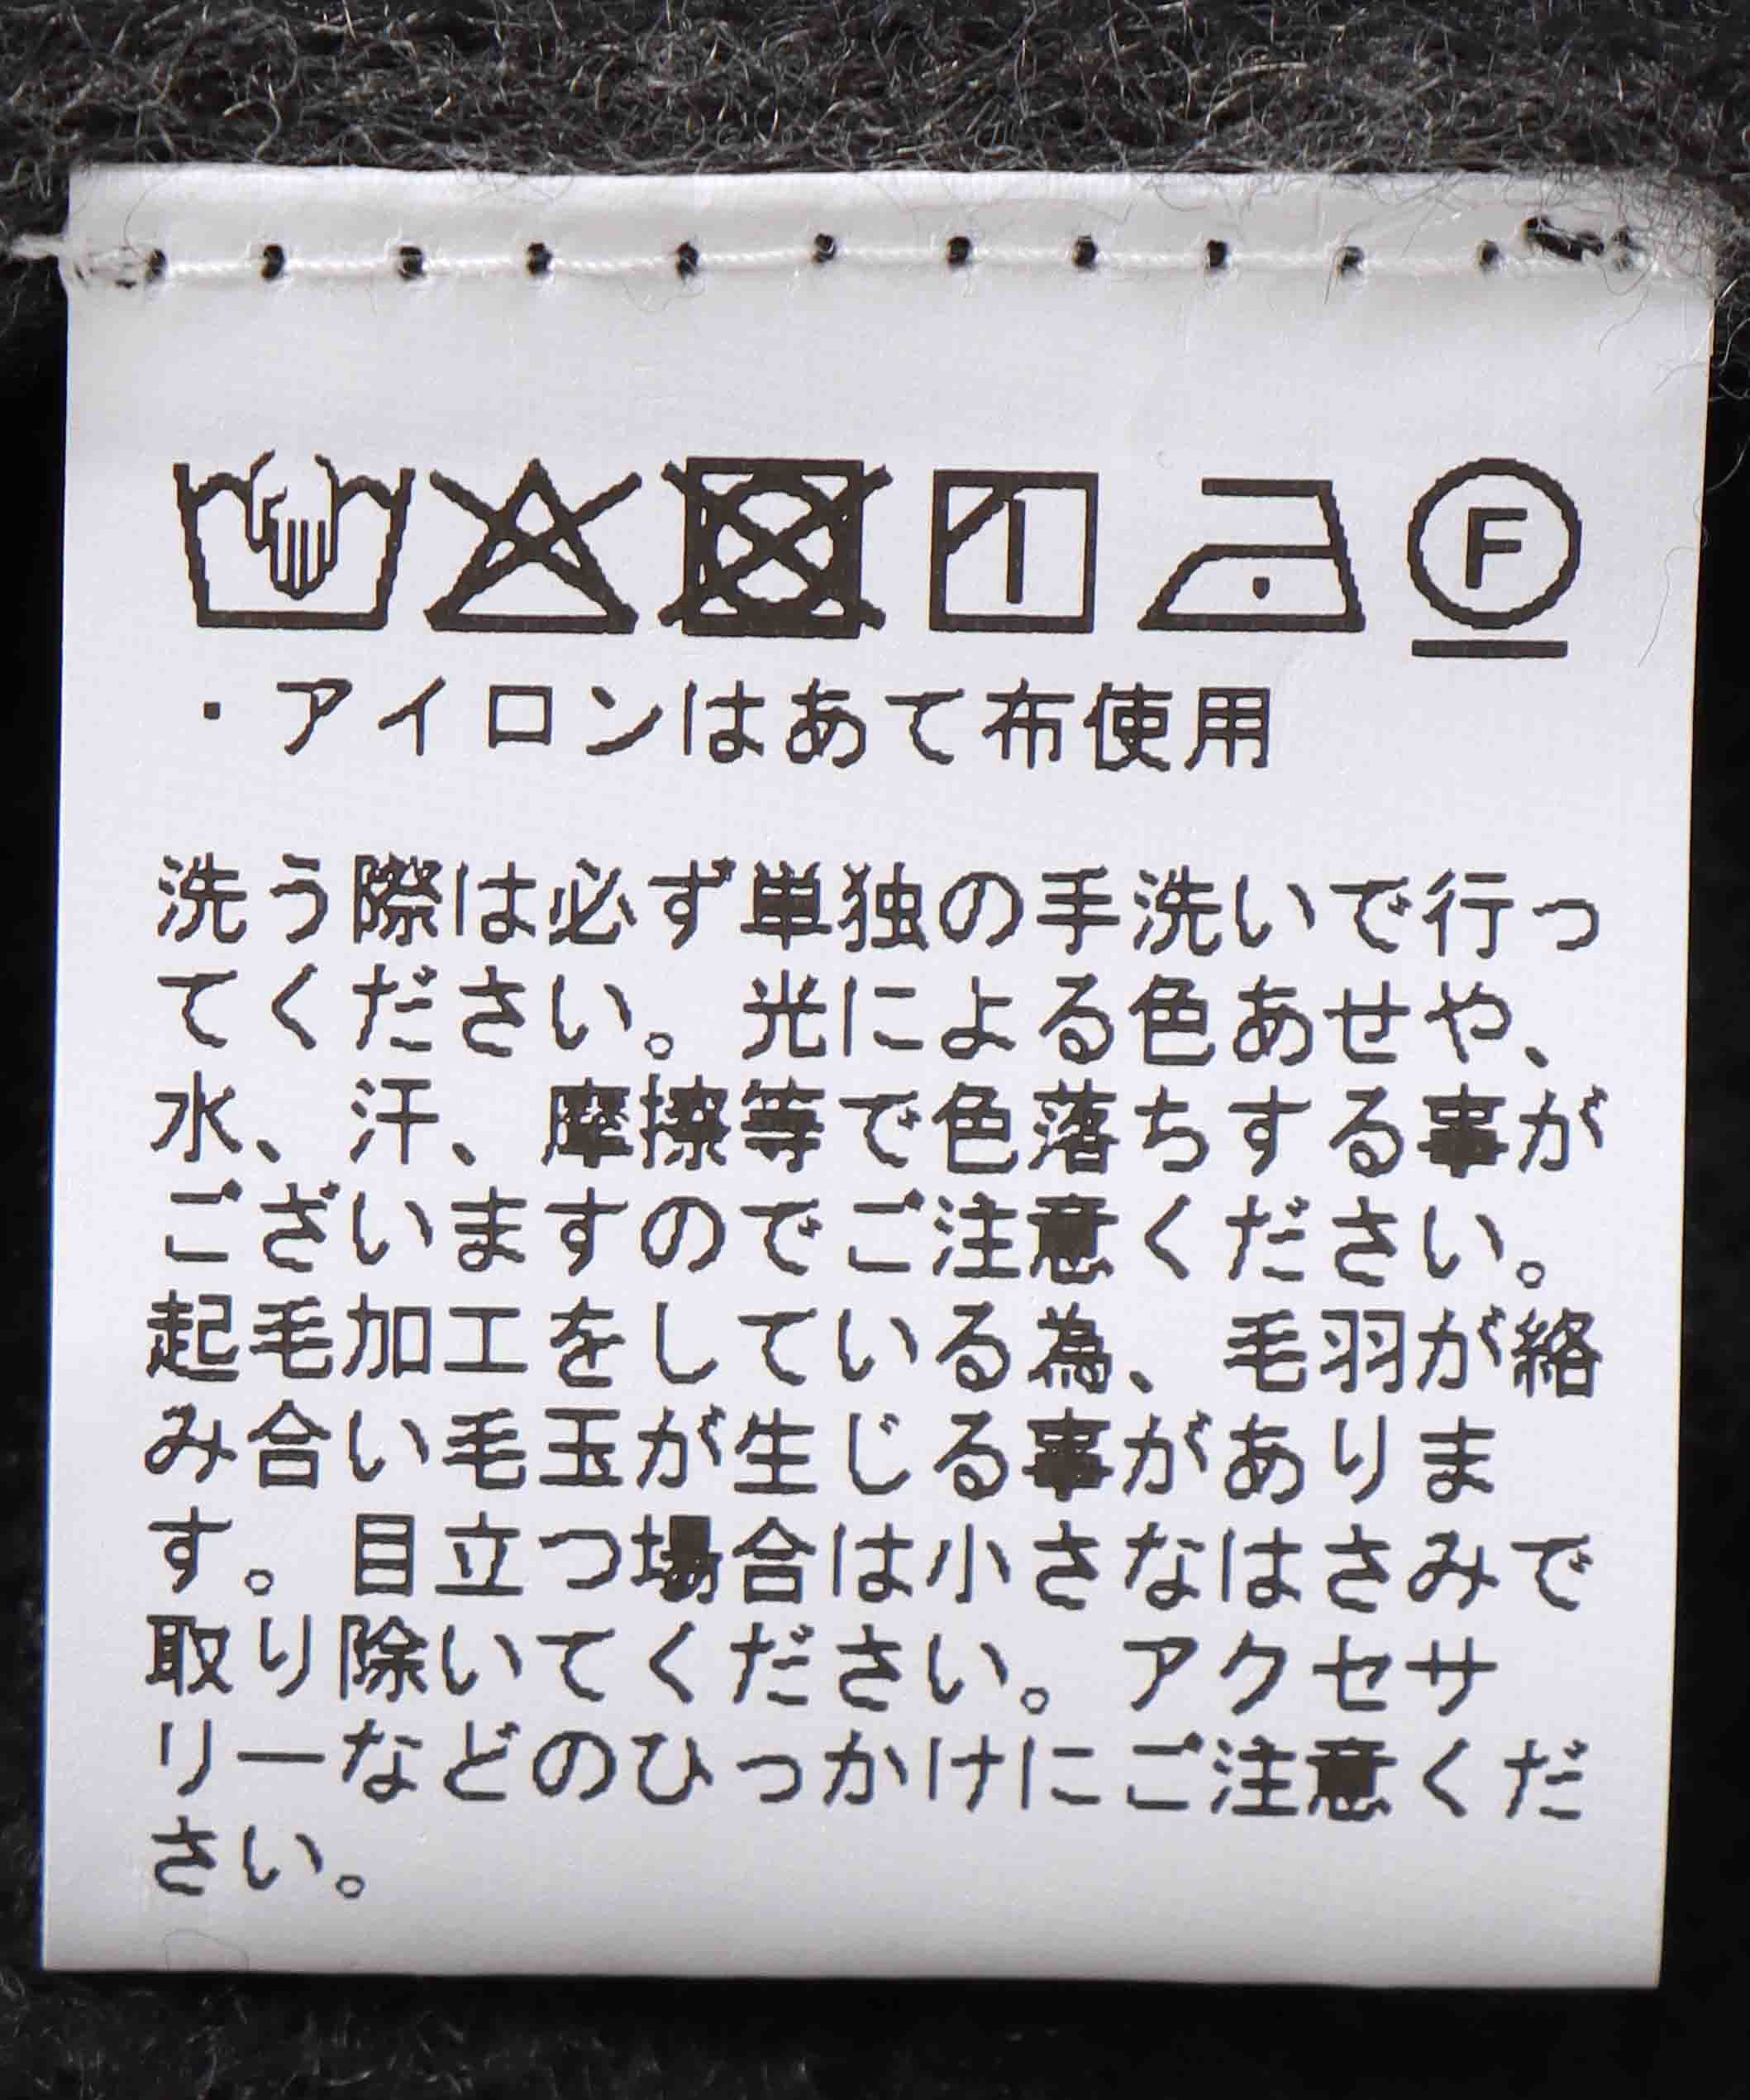 F
・アイロンはあて布使用
洗う際は必ず単独の手洗いで行っ
てください。光による色あせや、
水、汗、摩擦等で色落ちする事が
ございますのでご注意ください。
起毛加工をしている為、毛羽が絡
み合い毛玉が生じる事がありま
す。目立つ場合は小さなはさみで
取り除いてください。アクセサ
リーなどのひっかけにご注意くだ
さい。